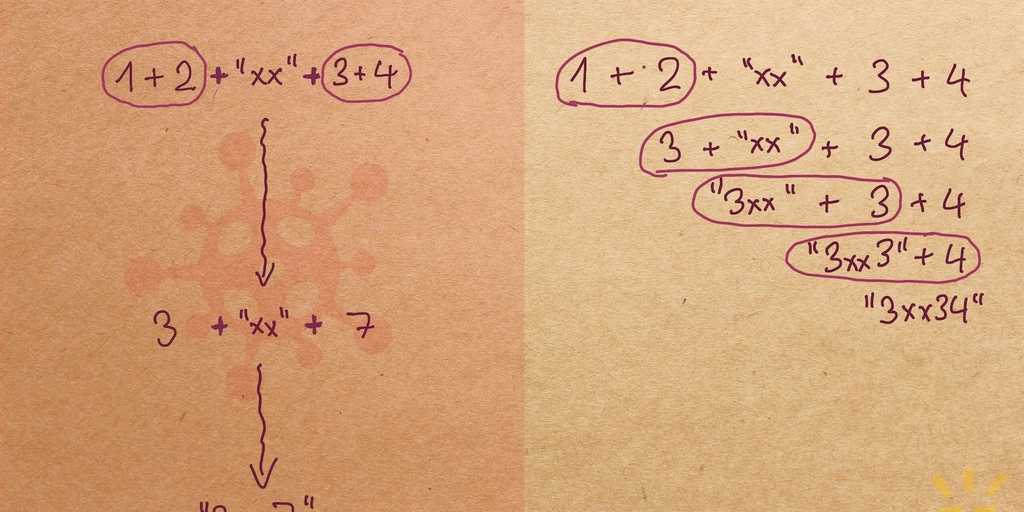 1 + 2 + "xx" + 3 + 4
3 + "xx" + 7
1 + 2 + "xx" + 3 + 4
3 + "xx" + 3 + 4
"3xx" + 3 + 4
"3xx3" + 4
"3xx34"